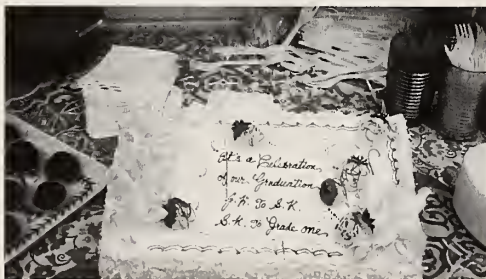 It's a Celebration
of our Graduation
J.K. To S.K.
S.K. To Grade one